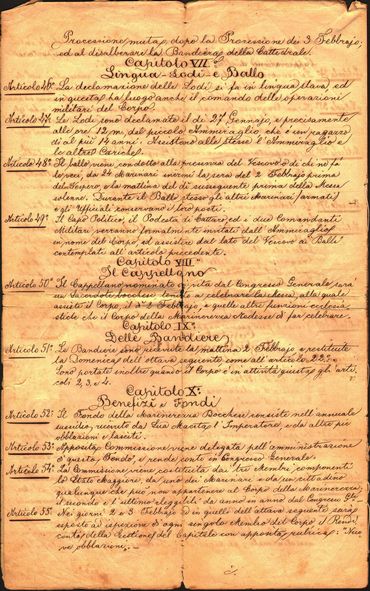 Processione muta, dopo la Processione dei 3 Febbrajo,
ed al disalberare la Bandiera della Cattedrale.
Capitolo VII°
Lingua - Lodi - e Ballo
Articolo 46° La declamazione delle Lodi si fa in lingua slava, ed
in questa ha luogo anche il comando delle operazioni
militari del Corpo.
Articolo 47° Le Lodi sono declamate il dì 27 Gennajo, e precisamente
alle ore 12 m. dal piccolo Ammiraglio, che è un ragazzo
di al più 14 anni. Assistono alla stesse l'Ammiraglio e
le altre Cariche.
Articolo 48° Il ballo viene condotto alla presenza del Vescovo o di chi ne fa
le veci, da 24 Marinari inermi la sera del 2 Febbrajo prima
del Vespero, e la mattina del dì susseguente prima della Messa
solenne. Durante il Ballo stesso gli altri Marinari (armati)
e gli Ufficiali conservano i loro posti.
Articolo 49° Il Capo Politico, il Podestà di Cattaro, ed i due Comandanti
Militari verranno formalmente invitati dall'Ammiraglio
in nome del Corpo, ed assistere dal lato del Vescovo al Ballo
contemplato all'articolo precedente.
Capitolo VIII°
Il Cappellano
Articolo 50° Il Cappellano nominato a vita dal Congresso Generale, sarà
un Sacerdote bocchese tenuto a celebrare la messa, alla quale
assiste il Corpo il dì 3 Febbrajo, e quelle altre funzioni ecclesia
stiche che il Corpo della Marinerezza credesse di far celebrare.
Capitolo IX°
Delle Bandiere
Articolo 51° Le Bandiere sono ricevute la mattina 2 Febbrajo e restituite
la Domenica dell'ottava seguente come all'articolo 22, e
sono portate inoltre quando il Corpo è in attività giusta gli arti-
coli 2, 3 e 4.
Capitolo X°
Benefizi e Fondi
Articolo 52° Il Fondo della Marinerezza Bocchese consiste nell'annuale
sussidio, ricevuto da Sua Maestà l'Imperatore, e da altre pie
obblazioni e lasciti.
Articolo 53° Apposita Commissione viene delegata pell'amministrazione
di questo Fondo, e rende conto in Congresso Generale.
Articolo 54° La Commissione viene costituita dai tre Membri componenti
lo Stato Maggiore, da uno dei Marinari e da un cittadino
qualunque che può non appartenere al Corpo della Marinerezza.
Il secondo e l'ultimo eleggibili da anno in anno dal Congresso
Articolo 55° Nei giorni 2 e 3 Febbrajo ed in quelli dell'ottava seguente sarà
esposto ad ispezione d'ogni singolo Membro del Corpo il Rendi
conto della Gestione del Capitale con apposita rubrica: Nuo
ve obblazioni.